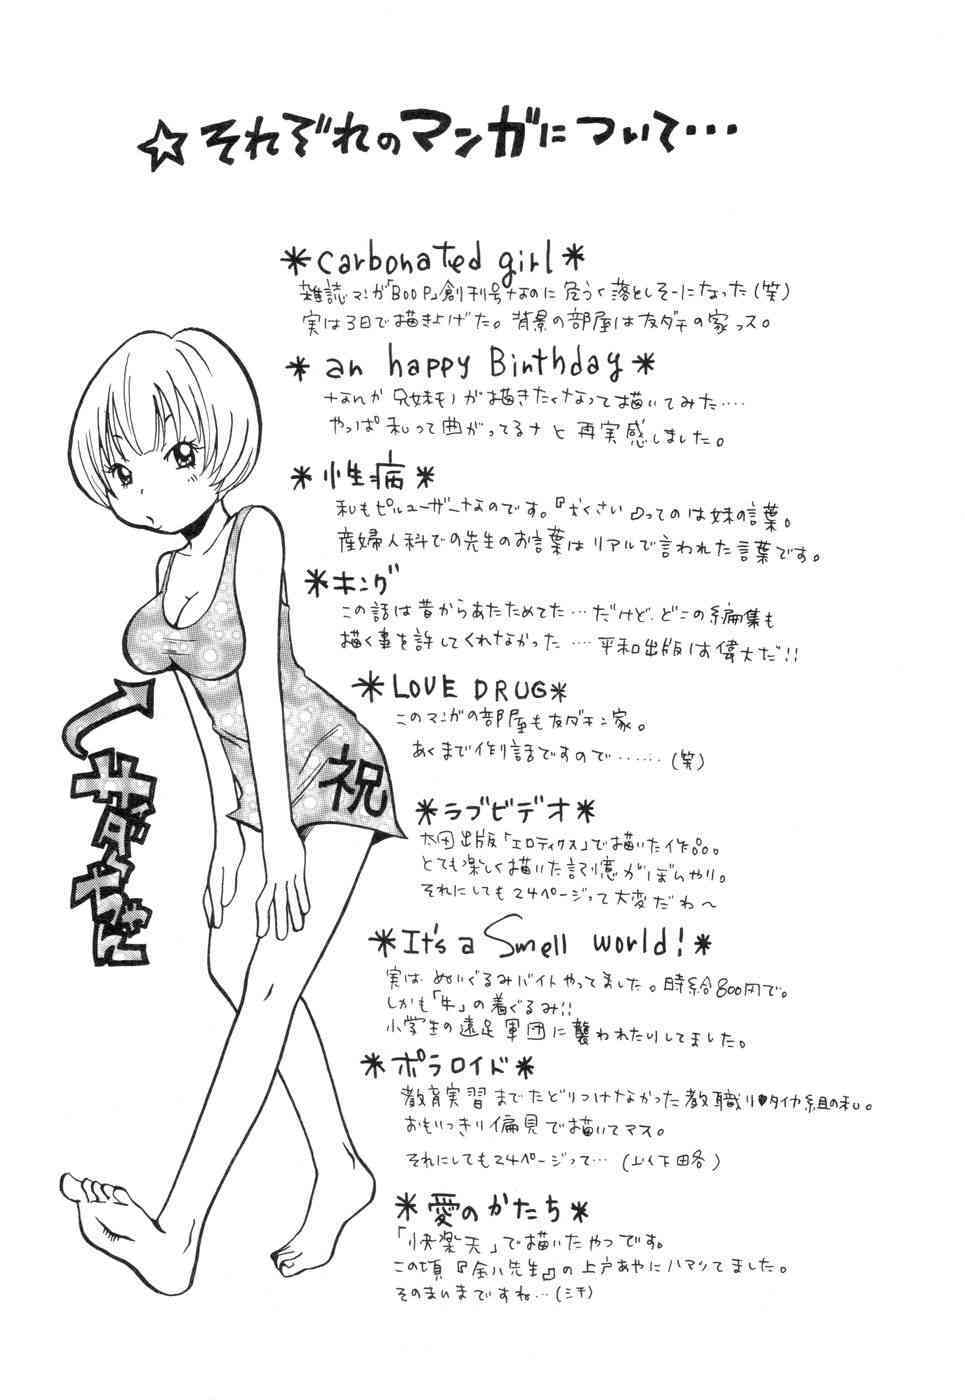 ☆それぞれのマンガについて・・・
*carbonated girl*
雑誌マンガ「BOOP」創刊号なのに危うく落としそーになった(笑)
実は3日で描きよげた。背景の部屋は友ダチの家っス。
*an happy Birthday*
なんか兄妹モノが描きたくなって描いてみた・・・・
やっぱ私って曲がってるナと再実感しました。
*性病*
私もピルユーザーなのです。『くさい』ってのは妹の言葉。
産婦人科での先生のお言葉はリアルで言われた言葉です。
*キング
この話は昔からあたためてた・・・だけど、どこの編集も
描く事を許してくれなかった・・・・平和出版は偉大だ!!
*LOVE DRUG*
このマンガの部屋も友ダチン家。
あくまで作り話ですので・・・・・・(笑)
*ラブビデオ*
太田出版「エロティクス」で描いた作。。。
とても楽しく描いた記憶がぼんやり。
それにしても24ページって大変だわ〜
*It's a Smell world!*
実はぬいぐるみバイトやってました。時給800円で。
しかも「牛」の着ぐるみ!!
小学生の遠足軍団に襲われたりしてました。
*ポラロイド*
教育実習までたどりつけなかった教職リ♥タイヤ組の私。
おもいっきり偏見で描いてマス。
それにしても24ページって・・・(以下略)
*愛のかたち*
「快楽天」で描いたやつです。
この頃『金八先生』の上戸あやにハマってました。
そのまいまですね・・・(ミチ)
祝
サダちゃん